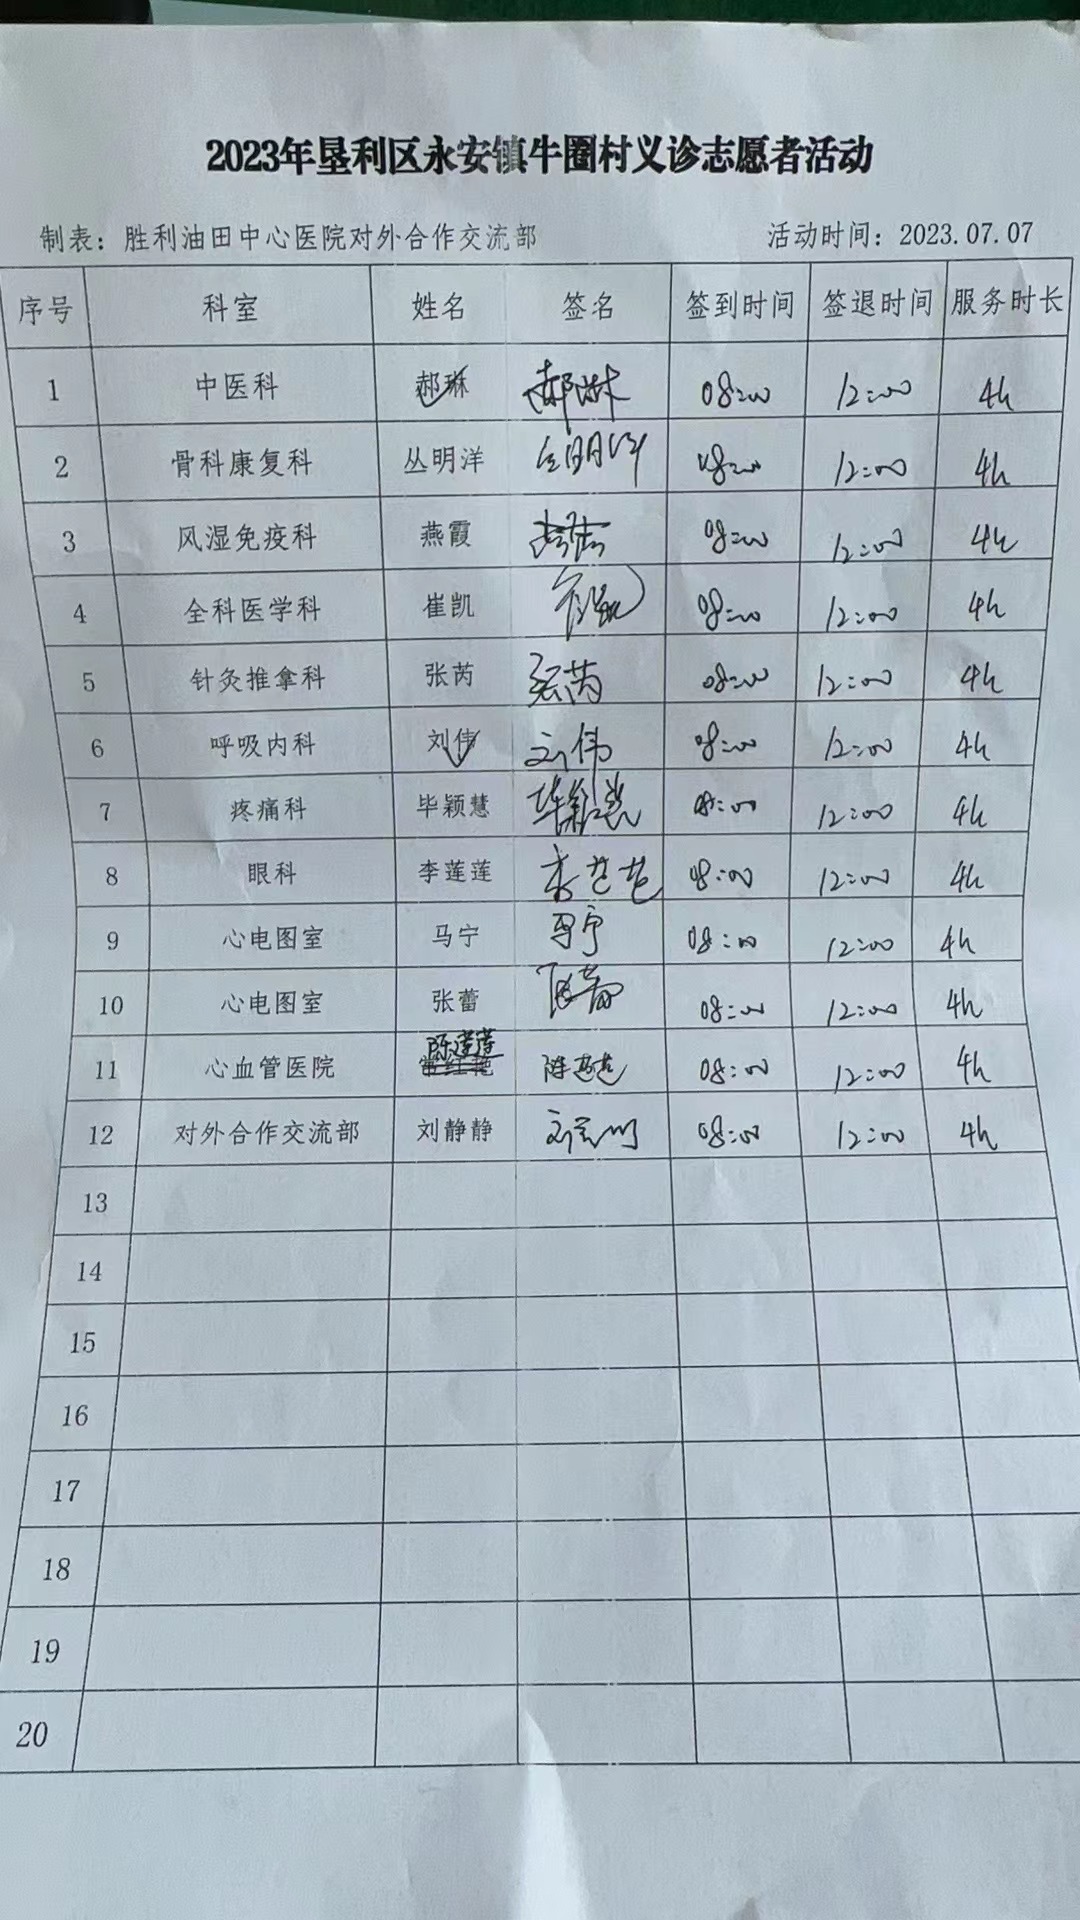 2023年垦利区永安镇牛圈村义诊志愿者活动
制表：胜利油田中心医院对外合作交流部 活动时间：2023.07.07
序号 科室 姓名 签名 签到时间 签退时间 服务时长
1 中医科 郝琳 郝琳 08:00 12:00 4h
2 骨科康复科 丛明洋 丛明洋 08:00 12:00 4h
3 风湿免疫科 燕霞 08:00 12:00 4h
4 全科医学科 崔凯 崔凯 08:00 12:00 4h
5 针灸推拿科 张芮 张芮 08:00 12:00 4h
6 呼吸内科 刘伟 刘伟 08:00 12:00 4h
7 疼痛科 毕颖慧 毕颖慧 08:00 12:00 4h
8 眼科 李莲莲 李莲莲 08:00 12:00 4h
9 心电图室 马宁 马宁 08:00 12:00 4h
10 心电图室 张蕾 张蕾 08:00 12:00 4h
陈莲莲
11 心血管医院 陈莲莲 08:00 12:00 4h
12 对外合作交流部 刘静静 08:00 12:00 4h
13
14
15
16
17
18
19
20